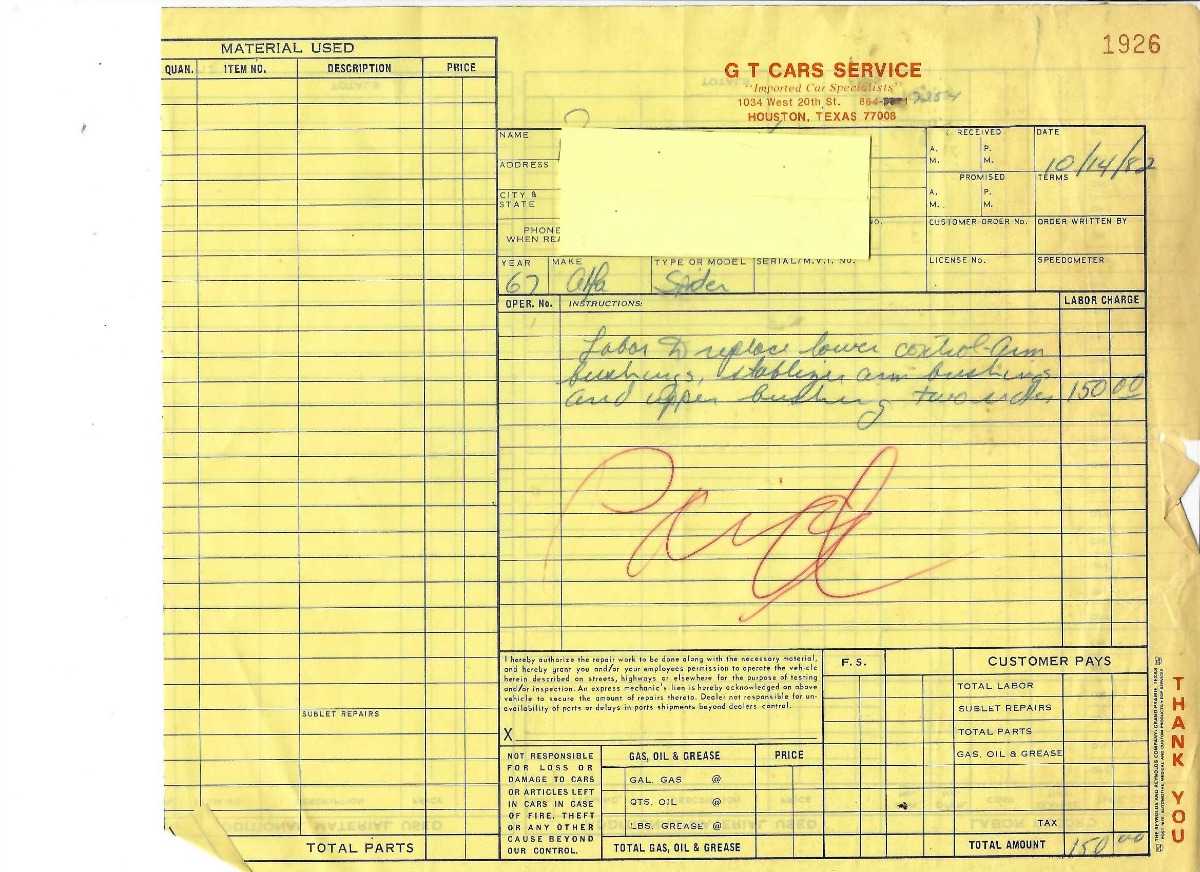 MATERIAL USED
QUAN. ITEM NO. DESCRIPTION PRICE
SUBLET REPAIRS
TOTAL PARTS
1926
G T CARS SERVICE
"Imported Car Specialists"
1034 West 20th St. 864-
HOUSTON, TEXAS 77008
NAME
ADDRESS
CITY &
STATE
PHONE
WHEN REA
RECEIVED
A. P.
M. M.
PROMISED
A. P.
M. M.
DATE
10/14/82
TERMS
CUSTOMER ORDER No. ORDER WRITTEN BY
YEAR MAKE TYPE OR MODEL SERIAL/M.V.I. NO. LICENSE No. SPEEDOMETER
67 Alfa Spider
OPER. No. INSTRUCTIONS: LABOR CHARGE
Labor to replace lower control-arm
bushings, stablizer arm bushings
and upper bushing two sides 150 00
Paid
I hereby authorize the repair work to be done along with the necessary material,
and hereby grant you and/or your employees permission to operate the vehicle
herein described on streets, highways or elsewhere for the purpose of testing
and/or inspection. An express mechanic's lien is hereby acknowledged on above
vehicle to secure the amount of repairs thereto. Dealer not responsible for un-
availability of parts or delays in parts shipments beyond dealers control.
X
NOT RESPONSIBLE
FOR LOSS OR
DAMAGE TO CARS
OR ARTICLES LEFT
IN CARS IN CASE
OF FIRE, THEFT
OR ANY OTHER
CAUSE BEYOND
OUR CONTROL.
GAS, OIL & GREASE PRICE
GAL. GAS @
QTS. OIL @
LBS. GREASE @
TOTAL GAS, OIL & GREASE
F.S.
CUSTOMER PAYS
TOTAL LABOR
SUBLET REPAIRS
TOTAL PARTS
GAS, OIL & GREASE
TAX
TOTAL AMOUNT 150 00
THANK YOU